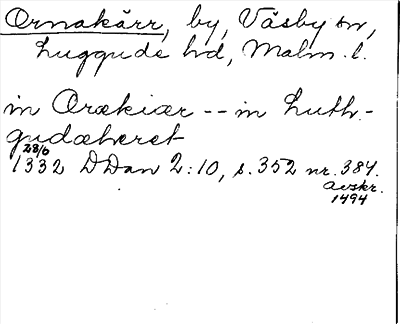 Ornakärr, by, Väsby sn,
Luggude hd, Malm. l.
in Orækiær -- in Luth-
gudæheret
28/6
1332 DDan 2:10, s. 352 nr. 384.
avskr.
1494